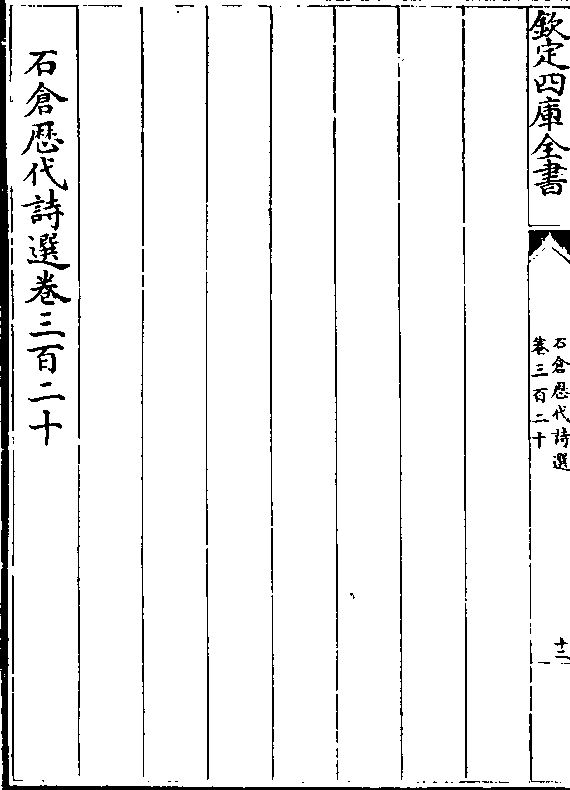 欽定四庫全書
石倉歴代詩選
卷三百二十
十二
石倉歴代詩選卷三百二十